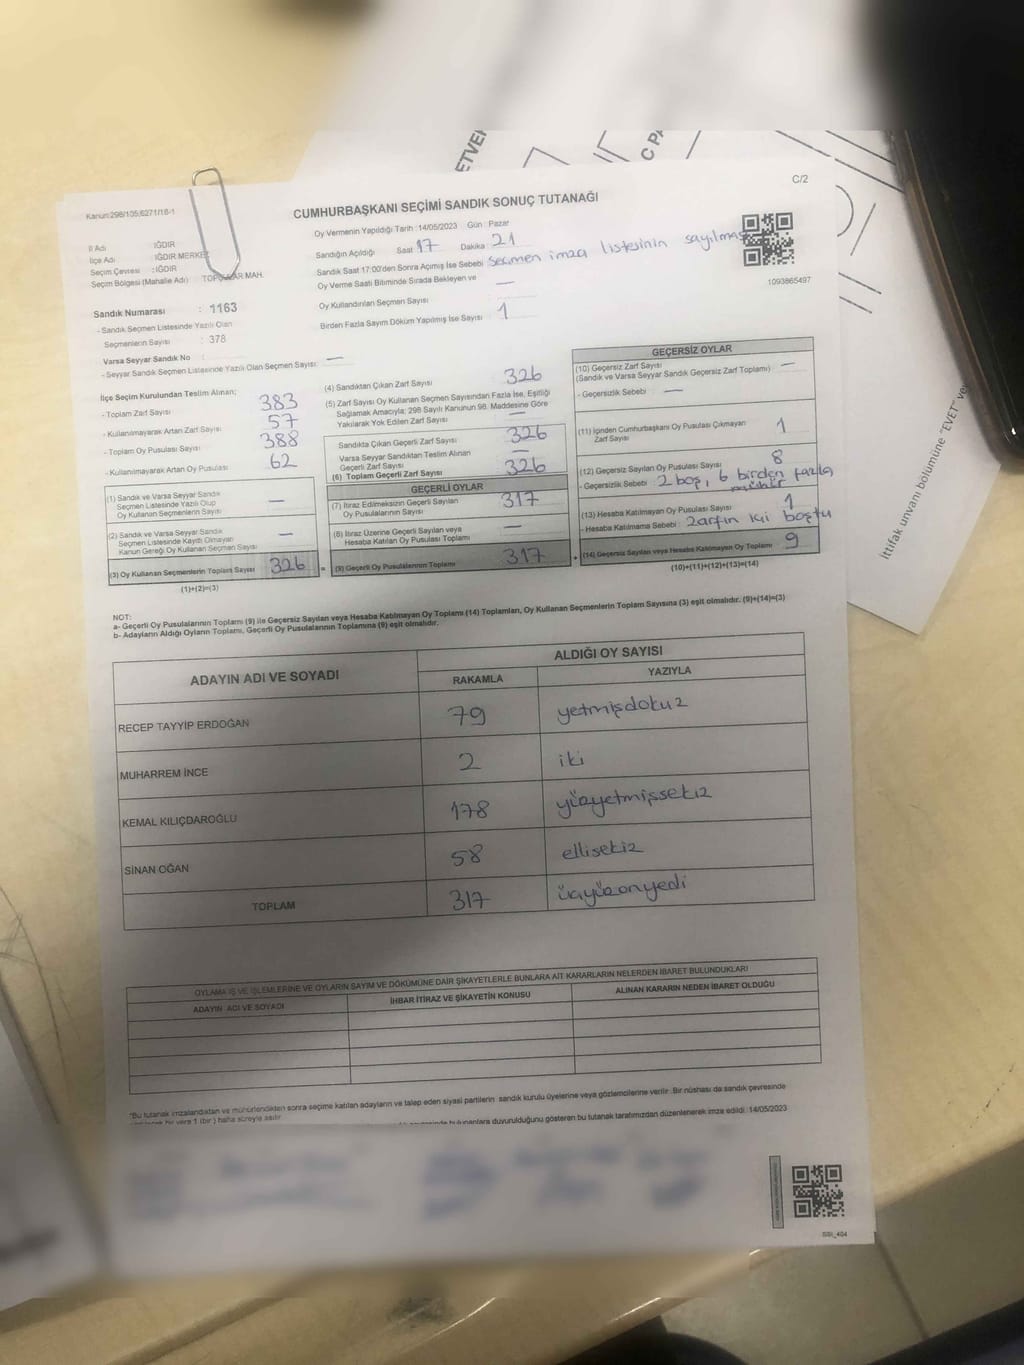 ETVER
C PA
C/2
Kanun:298/105;6271/18-1
CUMHURBAŞKANI SEÇİMİ SANDIK SONUÇ TUTANAĞI
Oy Vermenin Yapıldığı Tarih :14/05/2023 Gün : Pazar
İl Adı : IĞDIR
İlçe Adı : IĞDIR MERKEZ
Seçim Çevresi : IĞDIR
Seçim Bölgesi (Mahalle Adı) : MAH.
Sandığın Açıldığı Saat 17 Dakika : 21
Sandık Saat 17:00'den Sonra Açılmış İse Sebebi seçmen imza listesinin sayılması
Oy Verme Saati Bitiminde Sırada Bekleyen ve
Oy Kullandırılan Seçmen Sayısı —
Birden Fazla Sayım Döküm Yapılmış İse Sayısı : 1
1093865497
Sandık Numarası : 1163
- Sandık Seçmen Listesinde Yazılı Olan
Seçmenlerin Sayısı : 378
Varsa Seyyar Sandık No :
- Seyyar Sandık Seçmen Listesinde Yazılı Olan Seçmen Sayısı: —
İlçe Seçim Kurulundan Teslim Alınan;
- Toplam Zarf Sayısı 383
- Kullanılmayarak Artan Zarf Sayısı 57
- Toplam Oy Pusulası Sayısı 388
- Kullanılmayarak Artan Oy Pusulası 62
(1) Sandık ve Varsa Seyyar Sandık
Seçmen Listesinde Yazılı Olup
Oy Kullanan Seçmenlerin Sayısı —
(2) Sandık ve Varsa Seyyar Sandık
Seçmen Listesinde Kayıtlı Olmayan
Kanun Gereği Oy Kullanan Seçmen Sayısı —
(3) Oy Kullanan Seçmenlerin Toplam Sayısı 326 =
(1)+(2)=(3)
(4) Sandıktan Çıkan Zarf Sayısı 326
(5) Zarf Sayısı Oy Kullanan Seçmen Sayısından Fazla İse, Eşitliği
Sağlamak Amacıyla; 298 Sayılı Kanunun 98. Maddesine Göre
Yakılarak Yok Edilen Zarf Sayısı —
Sandıkta Çıkan Geçerli Zarf Sayısı 326
Varsa Seyyar Sandıktan Teslim Alınan
Geçerli Zarf Sayısı —
(6) Toplam Geçerli Zarf Sayısı 326
GEÇERLİ OYLAR
(7) İtiraz Edilmeksizin Geçerli Sayılan
Oy Pusulalarının Sayısı 317
(8) İtiraz Üzerine Geçerli Sayılan veya
Hesaba Katılan Oy Pusulası Toplamı —
(9) Geçerli Oy Pusulalarının Toplamı 317 +
GEÇERSİZ OYLAR
(10) Geçersiz Zarf Sayısı
(Sandık ve Varsa Seyyar Sandık Geçersiz Zarf Toplamı) —
- Geçersizlik Sebebi : —
(11) İçinden Cumhurbaşkanı Oy Pusulası Çıkmayan
Zarf Sayısı 1
(12) Geçersiz Sayılan Oy Pusulası Sayısı 8
- Geçersizlik Sebebi : 2 boş, 6 birden fazla
mühür
(13) Hesaba Katılmayan Oy Pusulası Sayısı 1
- Hesaba Katılmama Sebebi : zarfın içi boştu
(14) Geçersiz Sayılan veya Hesaba Katılmayan Oy Toplamı 9
(10)+(11)+(12)+(13)=(14)
NOT:
a- Geçerli Oy Pusulalarının Toplamı (9) ile Geçersiz Sayılan veya Hesaba Katılmayan Oy Toplamı (14) Toplamları, Oy Kullanan Seçmenlerin Toplam Sayısına (3) eşit olmalıdır. (9)+(14)=(3)
b- Adayların Aldığı Oyların Toplamı, Geçerli Oy Pusulalarının Toplamına (9) eşit olmalıdır.
ADAYIN ADI VE SOYADI ALDIĞI OY SAYISI
RAKAMLA YAZIYLA
RECEP TAYYİP ERDOĞAN 79 yetmişdokuz
MUHARREM İNCE 2 iki
KEMAL KILIÇDAROĞLU 178 yüzyetmişsekiz
SİNAN OĞAN 58 ellisekiz
TOPLAM 317 üçyüzonyedi
OYLAMA İŞ VE İŞLEMLERİNE VE OYLARIN SAYIM VE DÖKÜMÜNE DAİR ŞİKAYETLERLE BUNLARA AİT KARARLARIN NELERDEN İBARET BULUNDUKLARI
ADAYIN ADI VE SOYADI İHBAR İTİRAZ VE ŞİKAYETİN KONUSU ALINAN KARARIN NEDEN İBARET OLDUĞU
*Bu tutanak imzalandıktan ve mühürlendikten sonra seçime katılan adayların ve talep eden siyasi partilerin sandık kurulu üyelerine veya gözlemcilerine verilir. Bir nüshası da sandık çevresinde
bir yere 1 (bir) hafta süreyle asılır.
bulunanlara duyurulduğunu gösteren bu tutanak tarafımızdan düzenlenerek imza edildi. 14/05/2023
SSI_404
İttifak unvanı bölümüne "EVET" ve